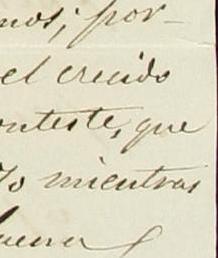 mos; por-
el crecido
onteste, que
to mientras
buena